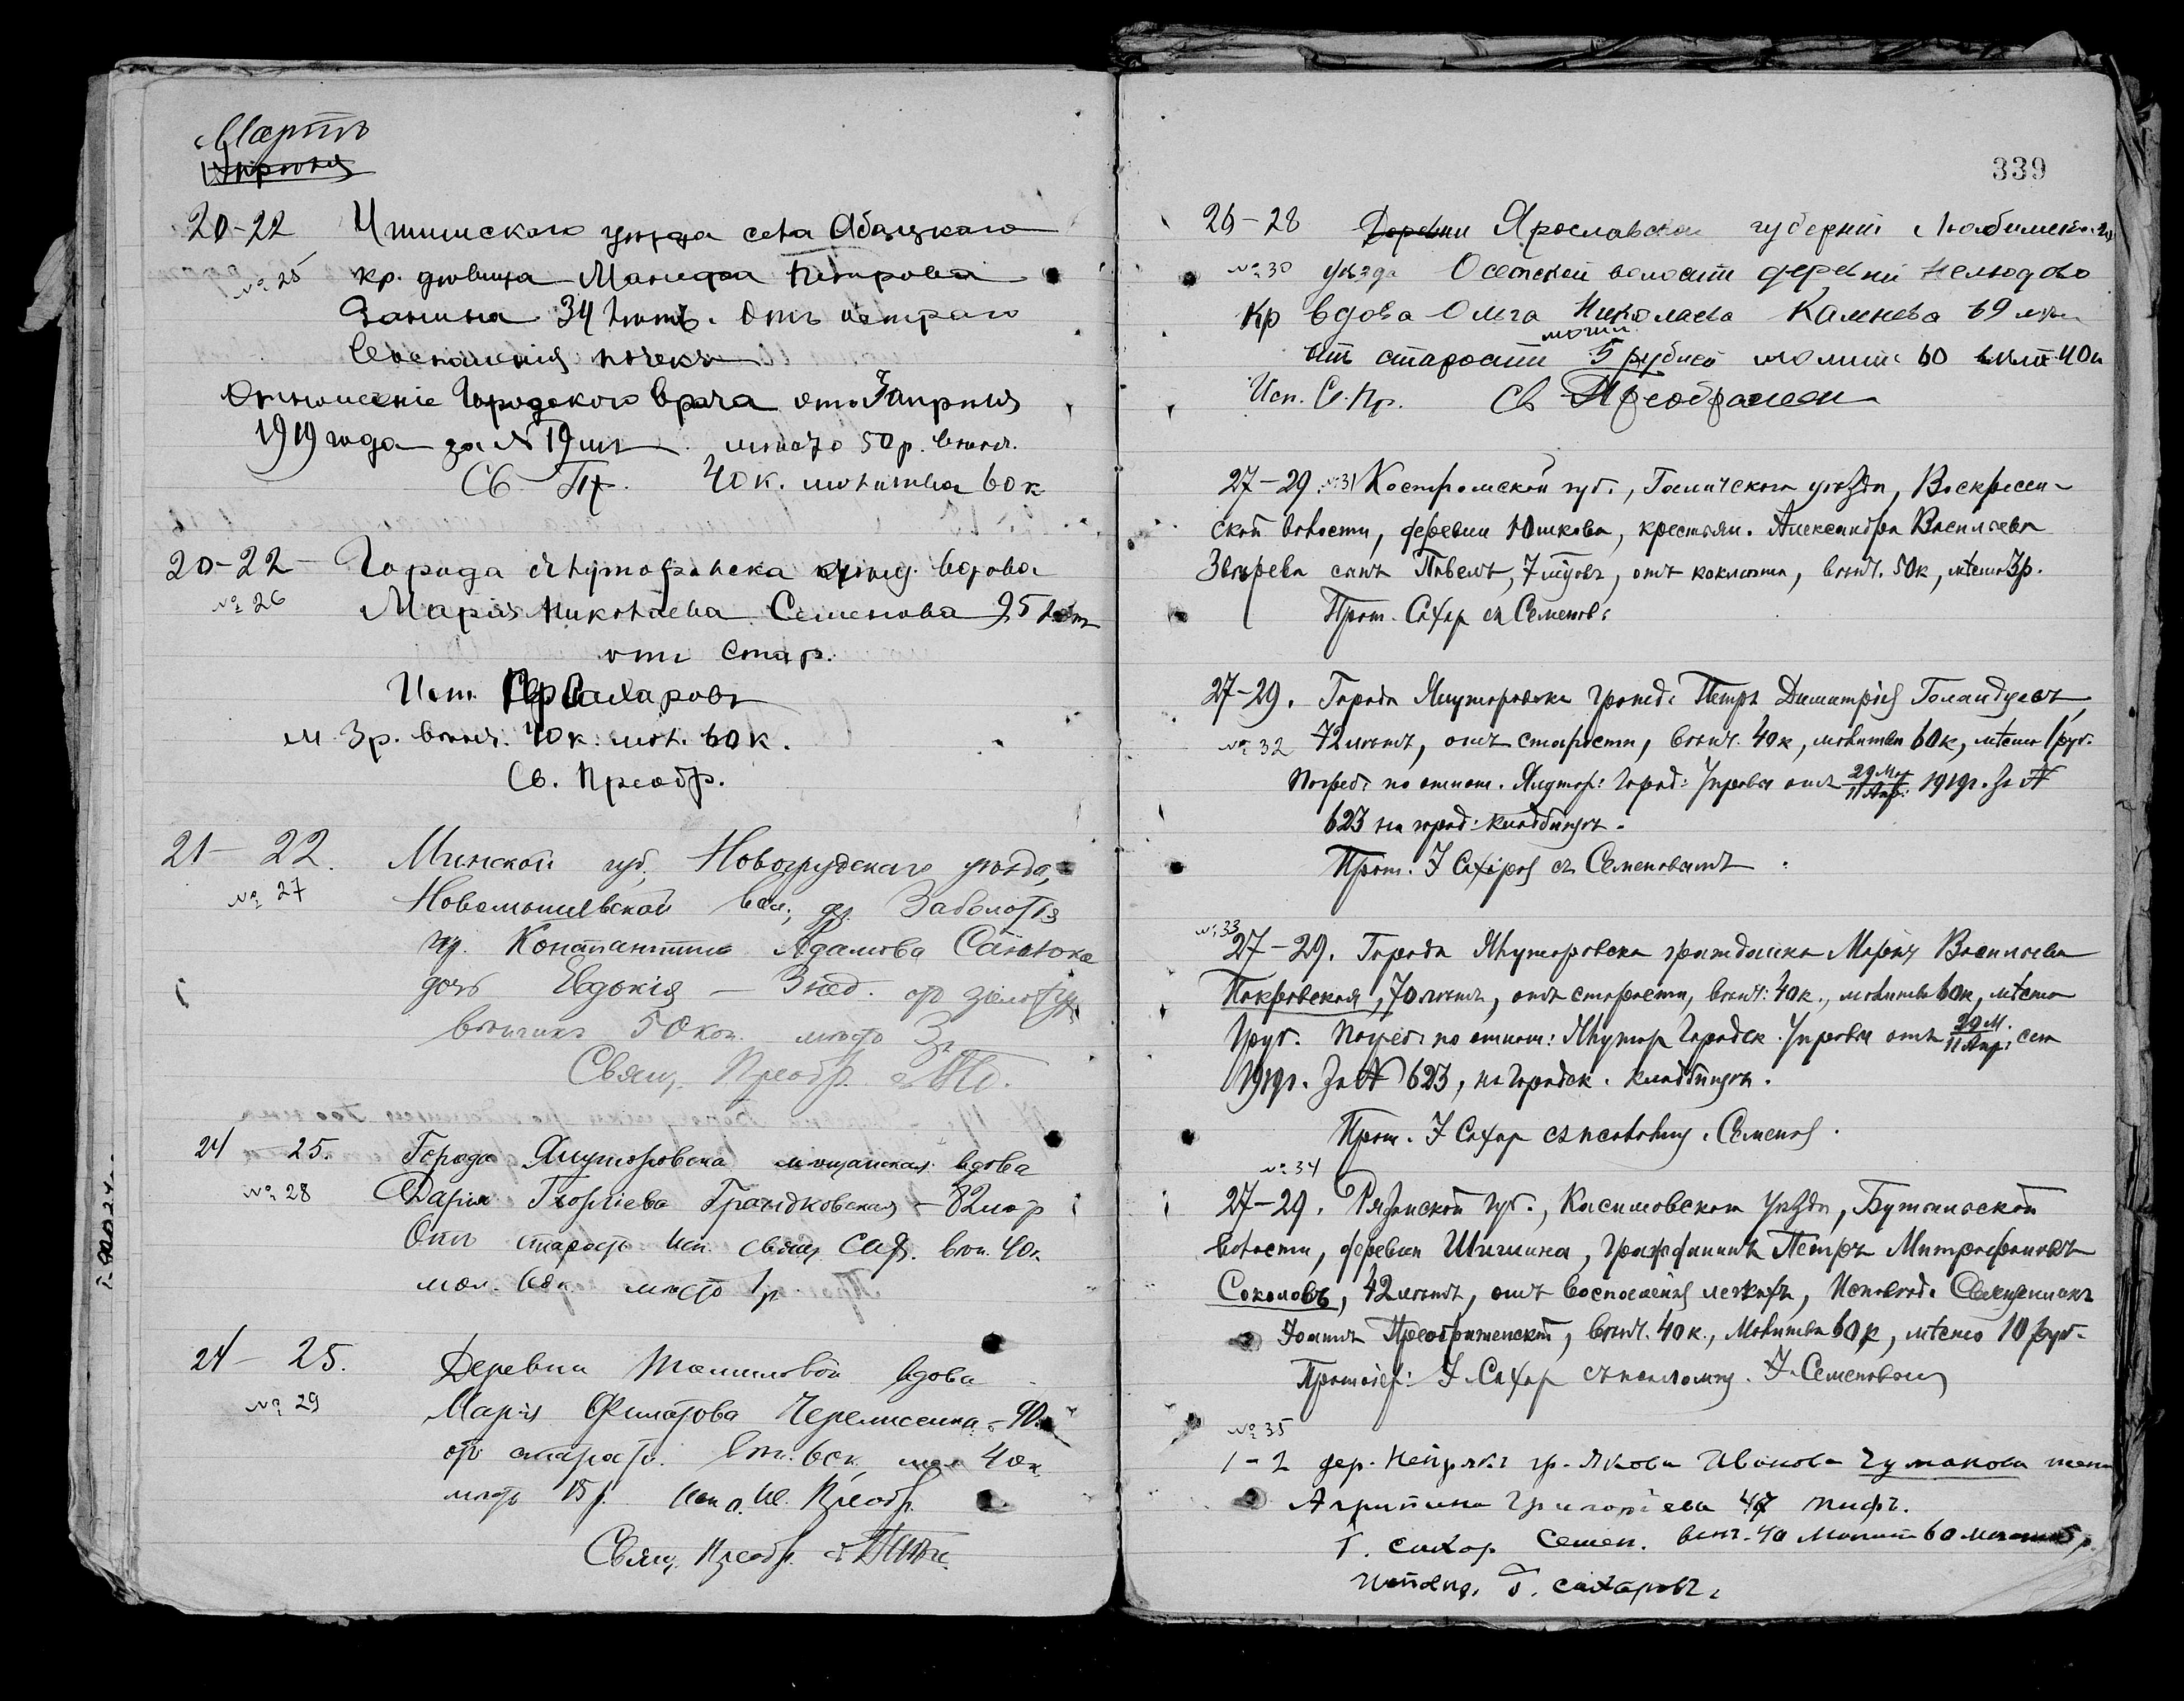 Мартъ
Апрѣля
20-22 Ишимскаго уѣзда села Абацкаго
№ 25 кр. дѣвица Манефа Петрова
Занина 34 лѣтъ. Отъ остраго
воспаленія почекъ
Отношеніе Городского Врача отъ Апрѣля
1919 года за № 19 мѣсто 50 р. вѣнч.
Св. Пр. 40 к. молитва 60 к
20-22 Города Ялуторовска вдова
№ 26 Марія Николаева Семенова 95 лѣт
отъ стар.
Исп. Пр Сахаровъ
м 3р. вѣнч. 40 к. мол. 60 к.
Св. Преобр.
21-22. Минской губ. Новогрудскаго уѣзда,
№ 27 Новомышевской вол., д. Заболотья
гр. Константина Адамова
дочь Евдокія — 3 нед. от
вѣнчикъ 50 коп. мѣсто 3р
Свящ. Преобр.
24-25. Города Ялуторовска мѣщанская вдова
№ 28 Дарія Георгіева — 82 лѣт
Отъ старост Исп. свящ. Сах. вѣн. 40к.
мол. 60к. мѣсто 1р
24-25. Деревни Томиловой вдова
№ 29 Марія Филатова Черемисина - 90
от старост. вѣн. 60к мол 40к
мѣсто 15 р. Исп. о. Преобр.
Свящ. Преобр.
339
26-28 Деревни Ярославской губерніи Любимскаго
№ 30 уѣзда Осетской волости деревни Нелюдово
Кр вдова Ольга Николаева Камнева 69 лѣт
отъ старости 5 рублей молит 60 40к
Исп. С. Пр. Св Преображен
27-29. № 31 Костромской губ., Галичскаго уѣзда, Воскресен-
ской волости, деревни Юшкова, крестьян. Александра Васильева
Звѣрева сынъ Павелъ, 7 отъ коклюша, вѣнч. 50к, мѣсто 3р.
Прот. Сахар съ Семенов:
27-29. Города Ялуторовска гражд. Петръ Димитріев
№ 32 72 лѣтъ, отъ старости, вѣнч. 40к, молитва 60к, мѣсто 1 руб.
Погреб. по отнош. Ялутор: Город: Управы отъ 29 Мар / 11 Апр. 1919г. за №
623 на город: кладбищѣ.
Прот. І Сахаров съ Семеновымъ
№ 33
27-29. Города Ялуторовска гражданка Марія Васильева
Покровская, 70 лѣтъ, отъ старости, вѣнч: 40к., молитва 60к, мѣсто
1руб. Погреб. по отнош: Ялутор Городск. Управы отъ 29 М. / 11 Апр. сего
1919г. за № 623, на Городск. кладбищѣ.
Прот. І Сахар съ псаломщ. Семенов.
№ 34
27-29. Рязанской губ., Касимовскаго уѣзда,
волости, деревни Шишкина, гражданинъ Петръ Митрофановъ
Соколовъ, 42 лѣтъ, отъ воспаленія легкихъ, Исповѣд. Священникъ
Іоаннъ Преображенскій, вѣнч. 40к., Молитва 60к, мѣсто 10 руб.
Протоіер: І. Сахар съ псаломщ. І. Семеновым
№ 35
1-2 дер. гр. Якова Иванова Чумакова жена
Агрипина Григорьева 47 тифъ.
І. сахар Семен. вѣнч. 40 Молит 60 мѣсто 5 р.
исповѣд. І. сахаровъ.